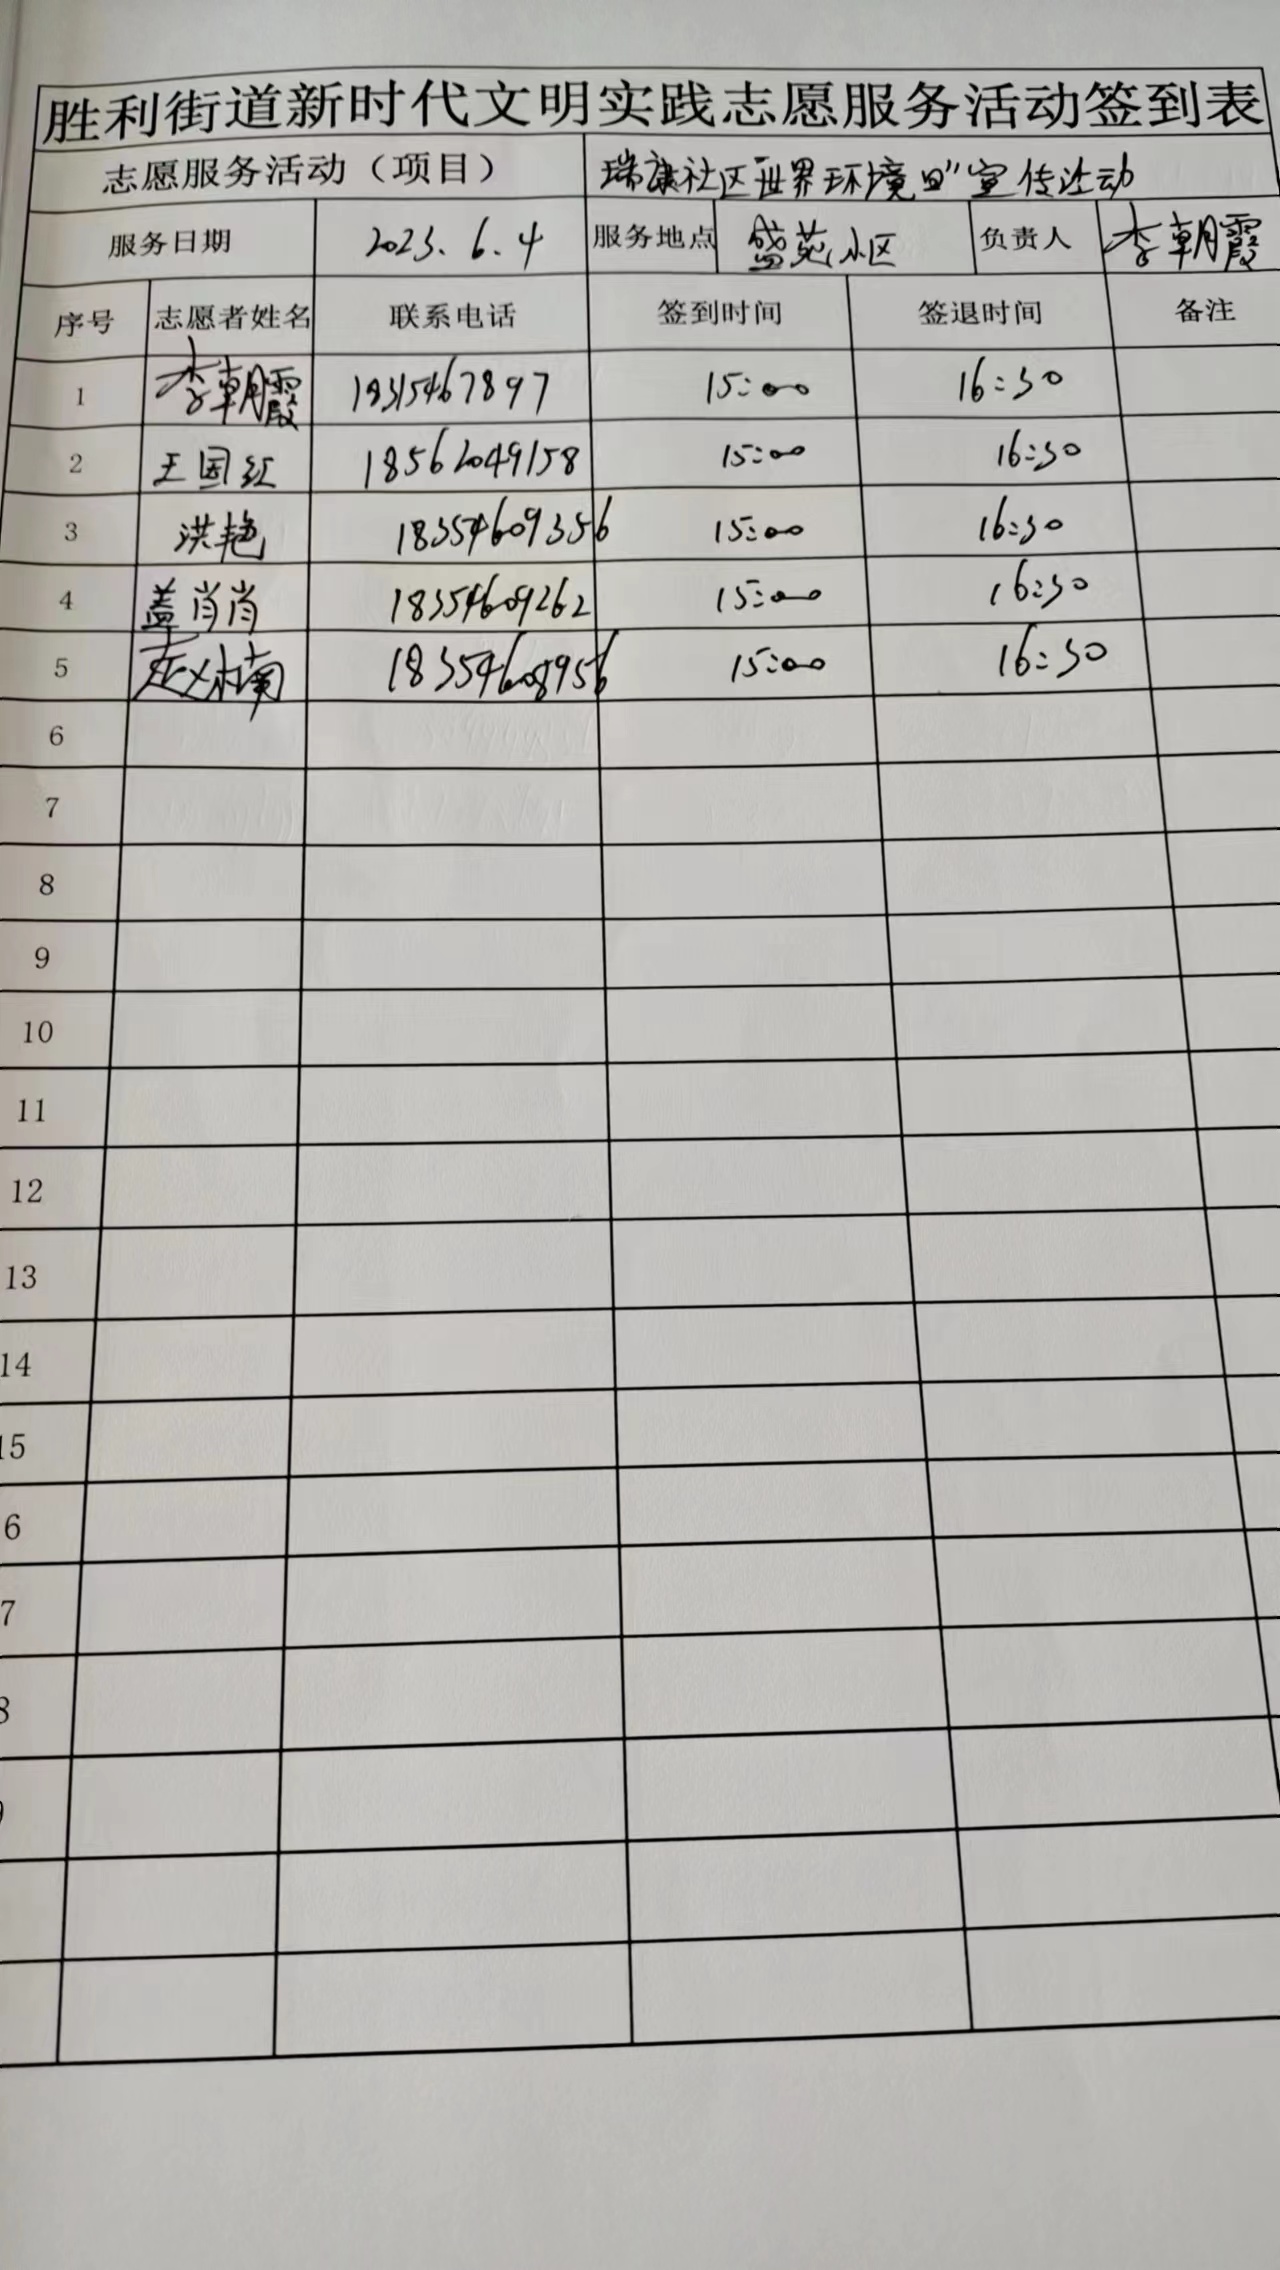 胜利街道新时代文明实践志愿服务活动签到表
志愿服务活动（项目） 瑞康社区"世界环境日"宣传活动
服务日期 2023.6.4 服务地点 盛苑小区 负责人 李朝霞
序号 志愿者姓名 联系电话 签到时间 签退时间 备注
1 李朝霞 18315467897 15:00 16:30
2 王国红 18562049158 15:00 16:30
3 洪艳 18354609356 15:00 16:30
4 盖肖肖 18354609262 15:00 16:30
5 赵楠 18354608956 15:00 16:30
6
7
8
9
10
11
12
13
14
15
6
7
8
9